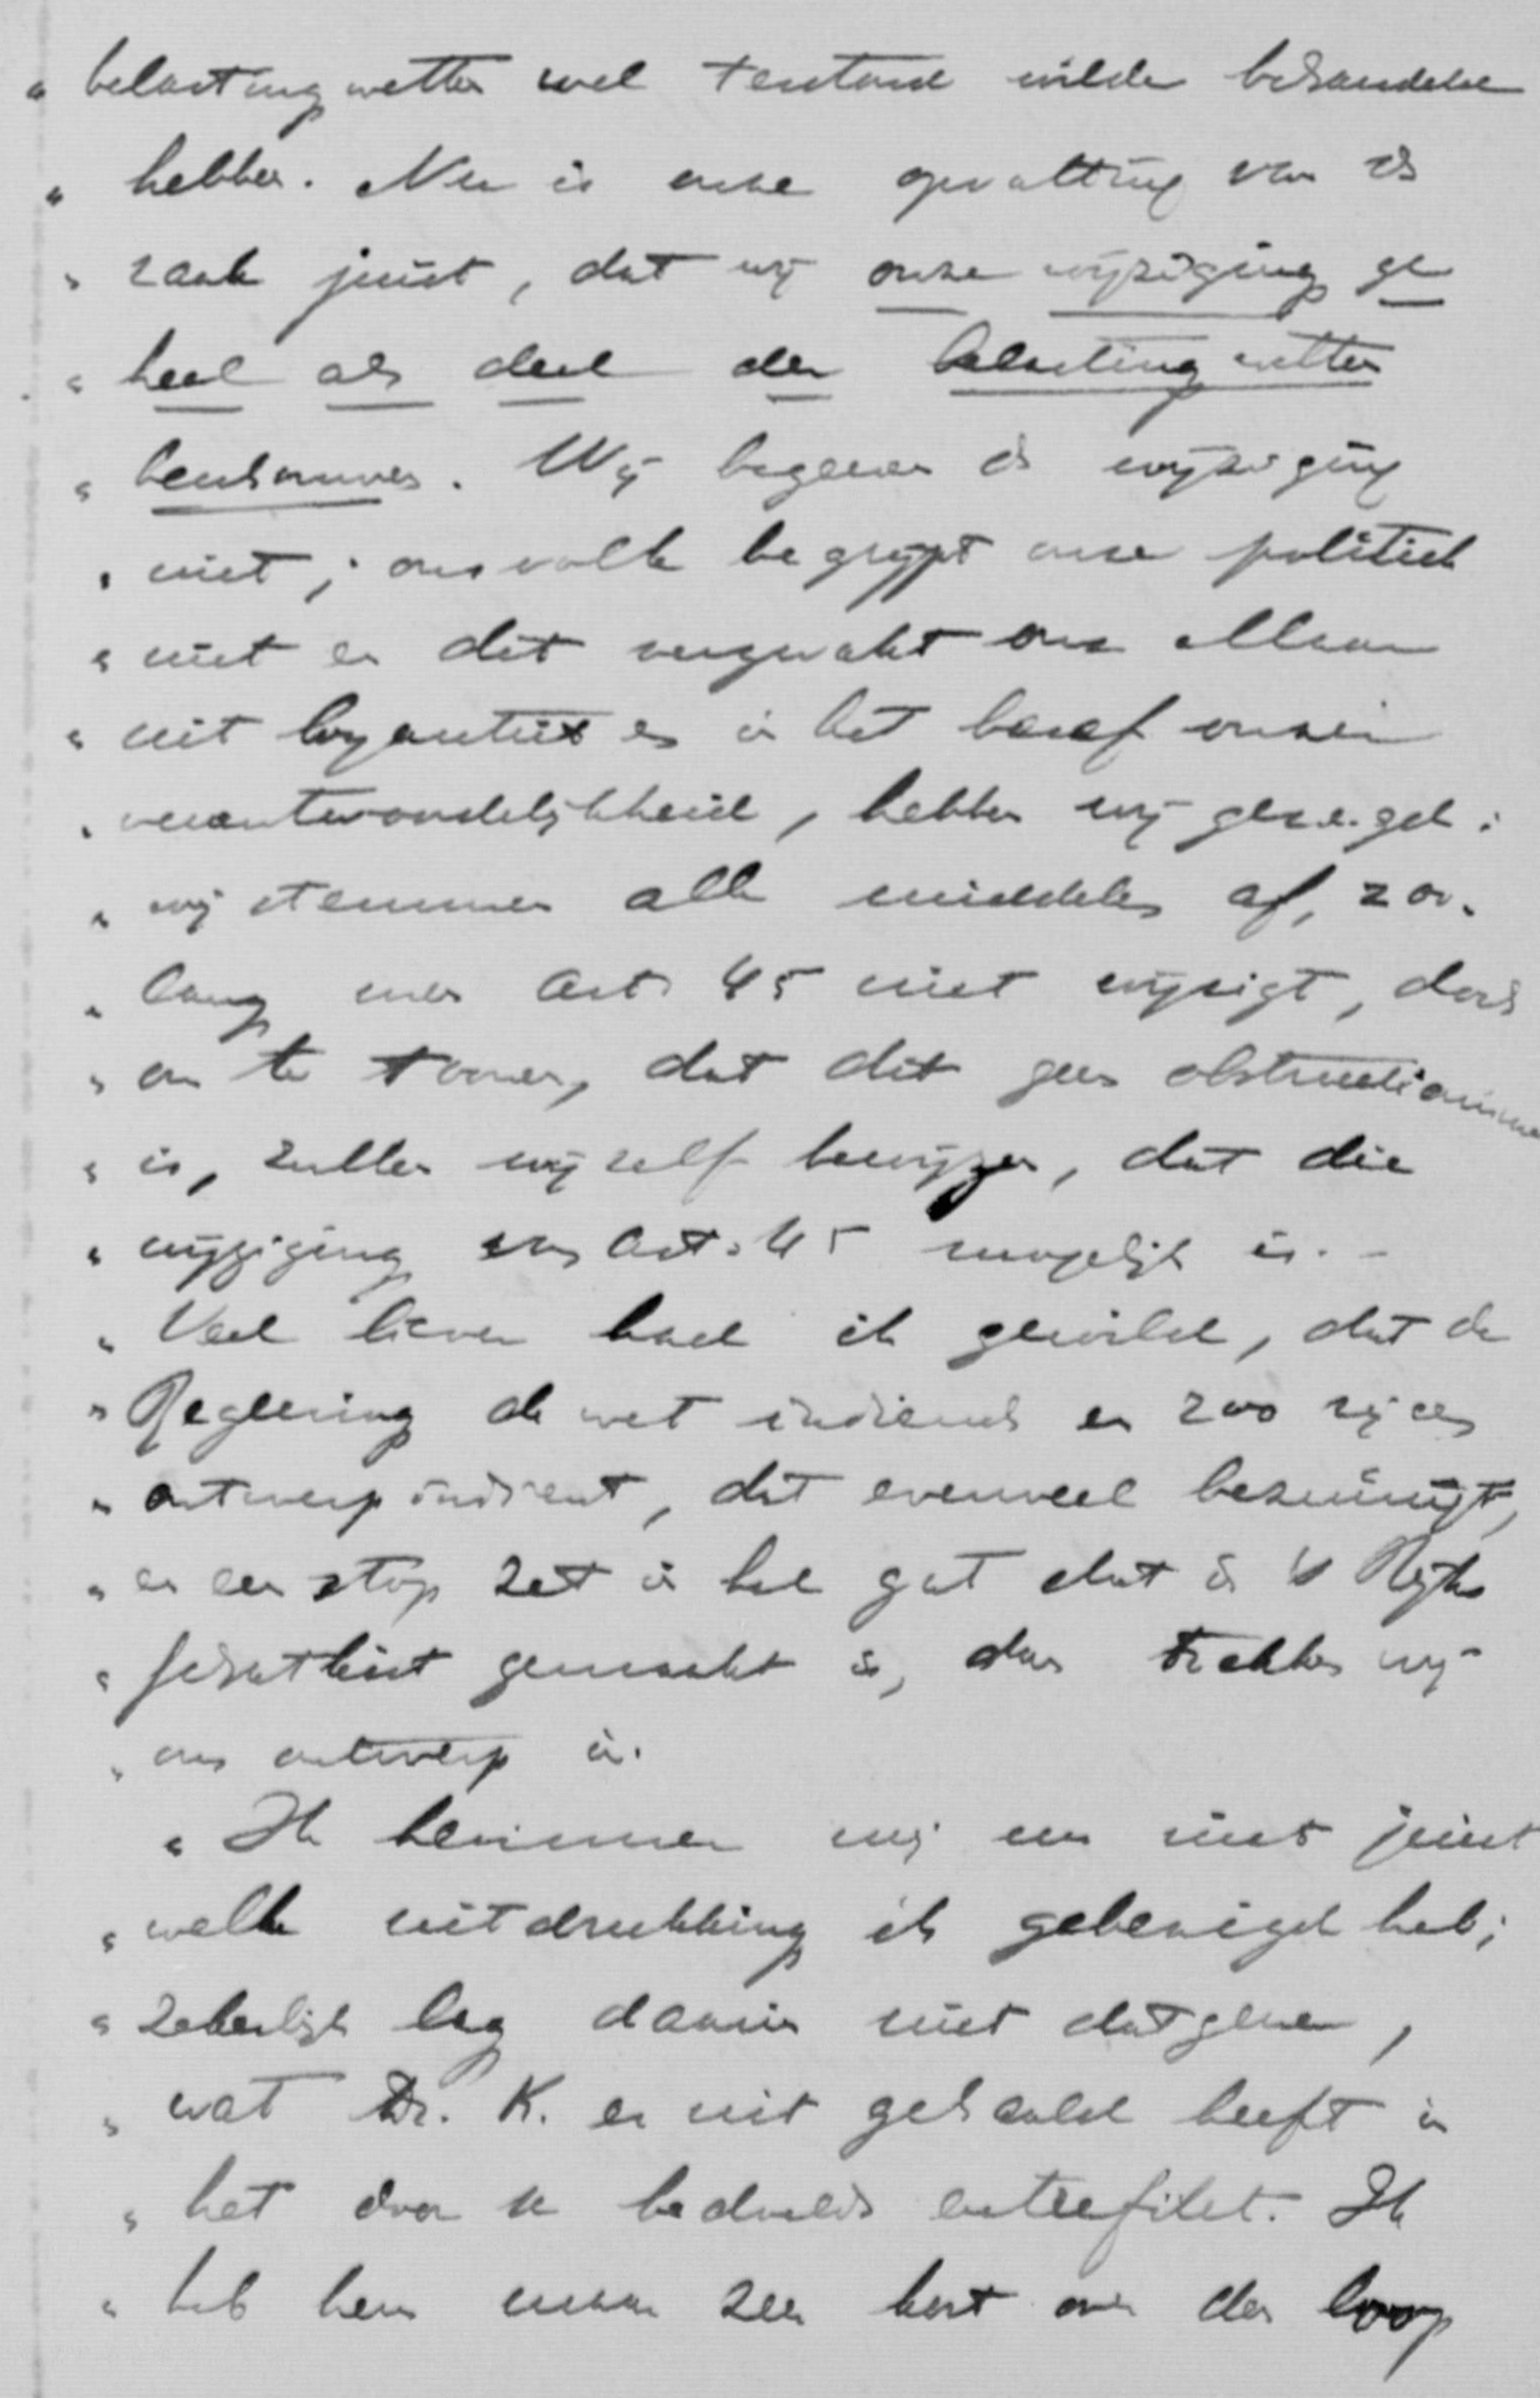 „ belastingwetten wel terstond wilde behandelen
„ hebben. Nu is onze opvatting van de
„ zaak juist, dat wij onze wijziging ge
„ heel als deel der belastingwetten
„ beschouwen. Wij begeeren de wijziging
„ niet; ons volk begrijpt onze politiek
„ niet en dit verzwakt ons. Alleen
„ uit en in het besef onzer
„ verantwoordelijkheid, hebben wij gezegd:
„ wij stemmen alle middelen af, zoo-
„ lang men Art. 45 niet wijzigt, doch
„ om te toonen, dat dit geen obstructionisme
„ is, zullen wij zelf bewijzen, dat die
„ wijziging van Art. 45 mogelijk is. -
„ Veel liever had ik gewild, dat de
„ Regeering de wet indiende en zoo zij een
„ ontwerp indient, dat evenveel bezuinigt,
„ en een stop zet in het gat dat in 's Rijks
„ schatkist gemaakt is, dan trekken wij
„ ons ontwerp in.
„ Ik herinner mij nu niet juist
„ welke uitdrukking ik gebezigd heb;
„ zekerlijk lag daarin niet datgene,
„ wat Dr. K. er uit gehaald heeft in
„ het door u bedoelde entrefilet. Ik
„ heb hem maar zeer kort over den loop